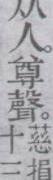 从人。尊聲。
慈損
十三